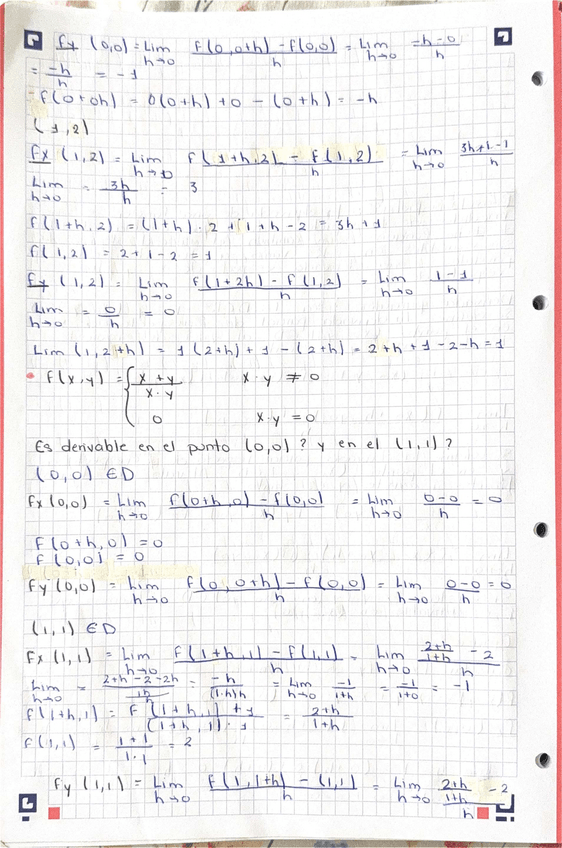 fy (0,0) = Lim h→0 f(0,0+h) - f(0,0) / h = Lim h→0 -h-0 / h
= -h/h = -1
f(0+0h) = 0(0+h) + 0 - (0+h) = -h
(1,2)
fx (1,2) = Lim h→0 f(1+h,2) - f(1,2) / h = Lim h→0 3h+1-1 / h
Lim h→0 = 3h/h = 3
f(1+h,2) = (1+h)·2 + 1+h-2 = 3h+1
f(1,2) = 2+1-2 = 1
fy (1,2) = Lim h→0 f(1+2h) - f(1,2) / h = Lim h→0 1-1 / h
Lim h→0 = 0/h = 0
Lim (1,2+h) = 1(2+h) + 1 - (2+h) = 2+h+1-2-h = 1
• f(x,y) = { x+y / x·y x·y ≠ 0
0 x·y = 0
Es derivable en el punto (0,0)? y en el (1,1)?
(0,0) ∈D
Fx (0,0) = Lim h→0 f(0+h,0) - f(0,0) / h = Lim h→0 0-0 / h = 0
F(0+h,0) = 0
F(0,0) = 0
Fy (0,0) = Lim h→0 f(0,0+h) - f(0,0) / h = Lim h→0 0-0 / h = 0
(1,1) ∈D
Fx (1,1) = Lim h→0 f(1+h,1) - f(1,1) / h = Lim h→0 2+h/1+h - 2 / h
Lim h→0 = 2+h-2-2h / = -h / (1+h)h = Lim h→0 -1/1+h = -1/1+0 = -1
f(1+h,1) = F (1+h,1) +1 / (1+h,1)·1 = 2+h / 1+h
F(1,1) = 1+1 / 1·1 = 2
Fy (1,1) = Lim h→0 f(1,1+h) - (1,1) / h = Lim h→0 2+h/1+h - 2 / h